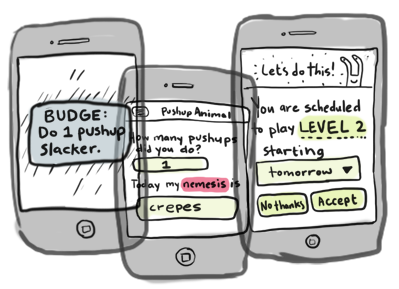 BUDGE:
Do 1 pushup
Slacker.
Pushup Animal
How many pushups
did you do?
1
Today my nemesis is
crepes
Let's do this!
You are scheduled
to play LEVEL 2
starting
tomorrow
No thanks
Accept